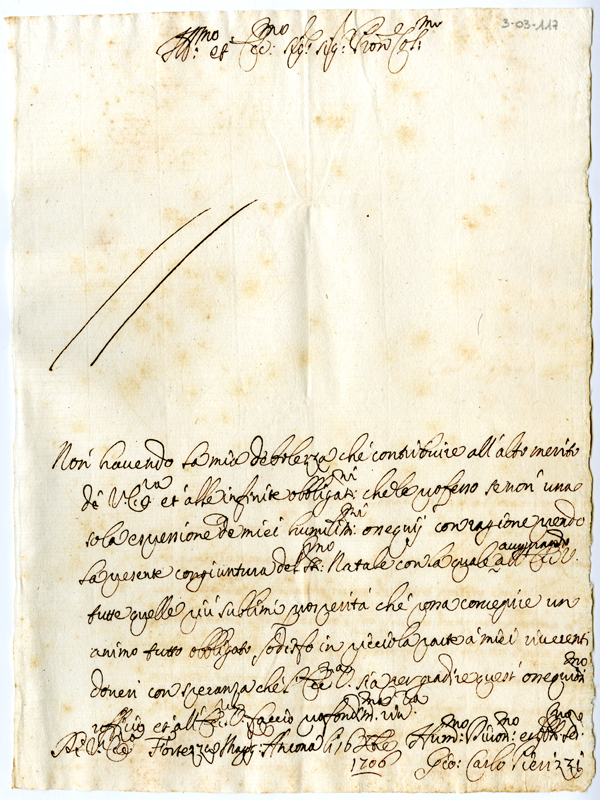 3-03-117
Ill:mo et Ecc:mo Sig:r Sig:r Pron:e Col:mo
Non havendo la mia debolezza ché contribuire all'alto merito
di V. Ecc.za et alle infinite obbligat:ni che le professo se non una
sola espressione de miei humiliss:mi ossequij con ragione prendo
la presente congiuntura del SS:mo Natale con la quale augurando all'Ecc.V.
tutte quelle più sublimi prosperità ché possa concepire un
animo tutto obbligato, sodisfo in picciola parte à miei riverenti
doveri con speranza ché l'Ecc.za V. sia per gradire quest' ossequios:mo
uffitio et all'Ecc.za V. faccio profondiss:ma riv:za
Di V. Ecc.za Fortezza Ancona li 16 Xbre Hum:mo Divot:mo et
1706 Gio: Carlo Pierizzi